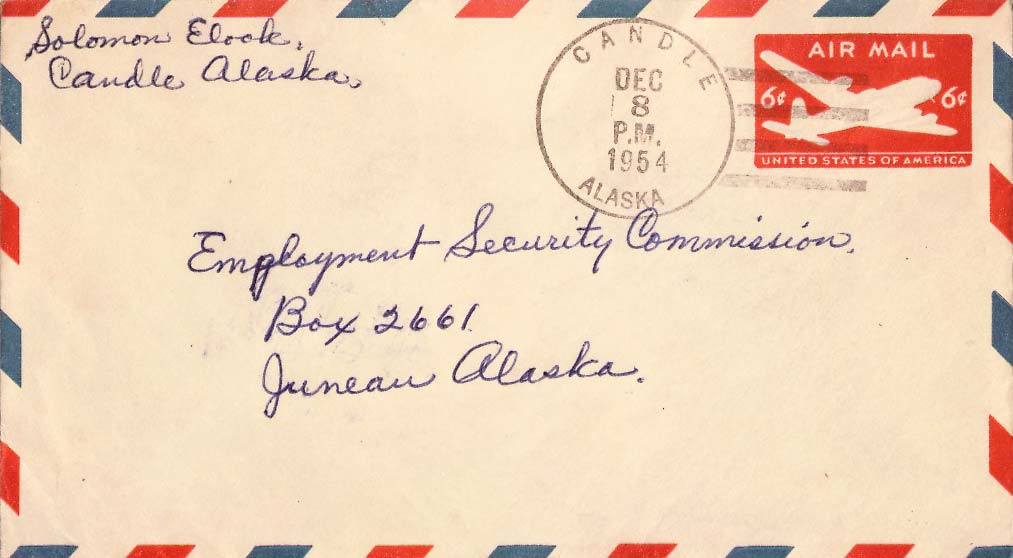 Solomon Elook,
Candle Alaska,
CANDLE
DEC
8
P.M.
1954
ALASKA
AIR MAIL
6¢ 6¢
UNITED STATES OF AMERICA
Employment Security Commission,
Box 2661
Juneau Alaska.